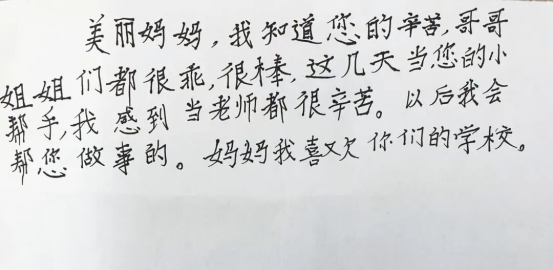 美丽妈妈，我知道您的辛苦，哥哥
姐姐们都很乖，很棒，这几天当您的小
帮手，我感到当老师都很辛苦。以后我会
帮您做事的。妈妈我喜欢你们的学校。